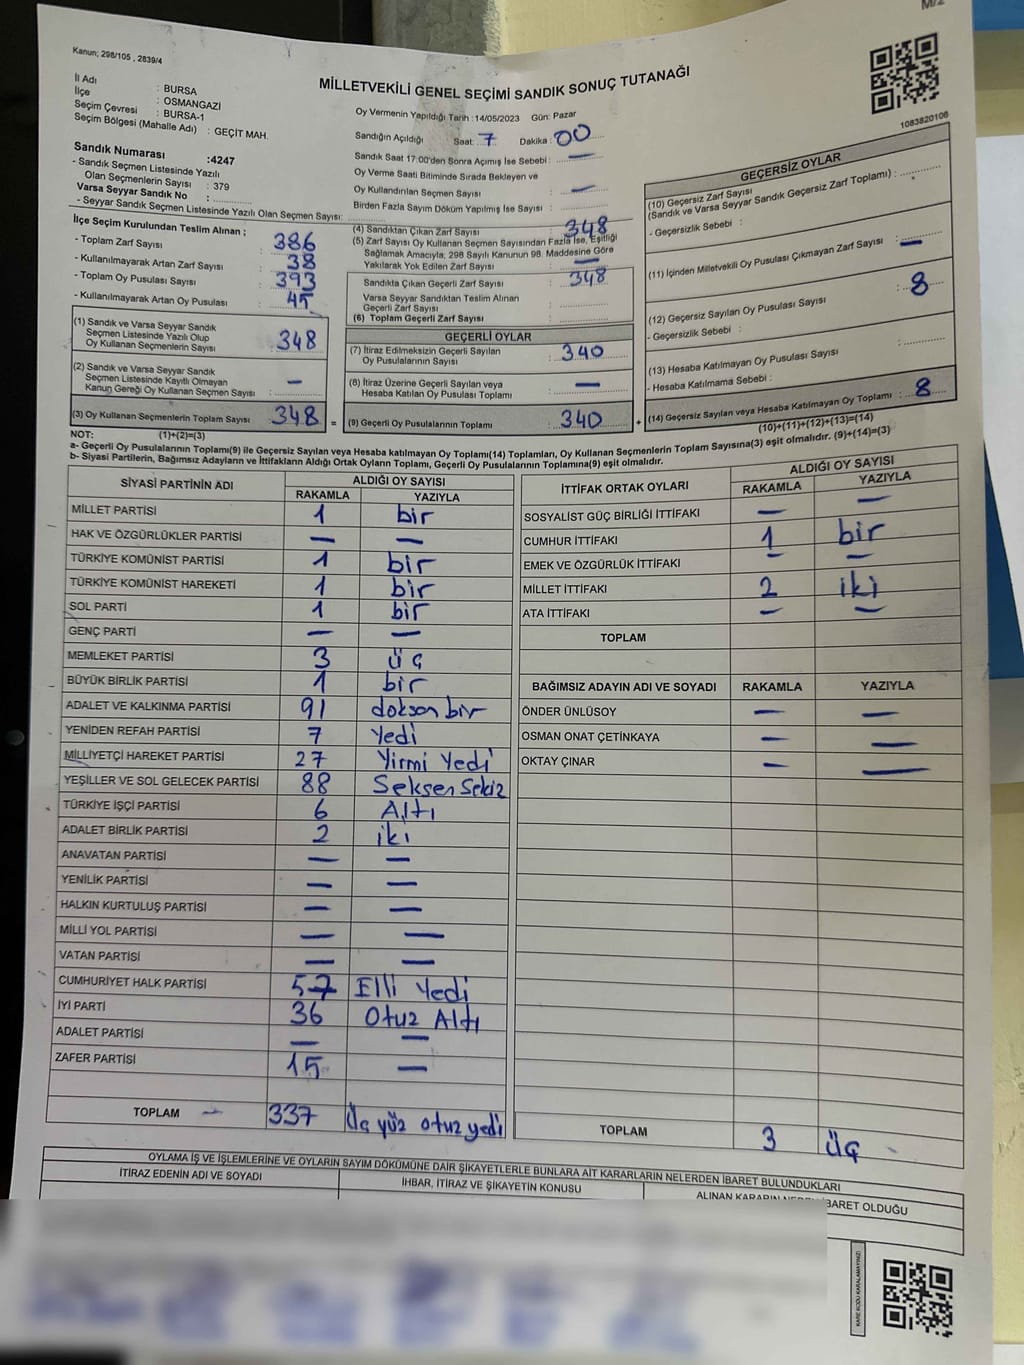 M/2
Kanun; 298/105 , 2839/4
MİLLETVEKİLİ GENEL SEÇİMİ SANDIK SONUÇ TUTANAĞI
1083820106
İl Adı : BURSA
İlçe : OSMANGAZİ
Seçim Çevresi : BURSA-1
Seçim Bölgesi (Mahalle Adı) : GEÇİT MAH.
Sandık Numarası :4247
- Sandık Seçmen Listesinde Yazılı
Olan Seçmenlerin Sayısı : 379
Varsa Seyyar Sandık No :
- Seyyar Sandık Seçmen Listesinde Yazılı Olan Seçmen Sayısı:
Oy Vermenin Yapıldığı Tarih :14/05/2023 Gün: Pazar
Sandığın Açıldığı Saat: 7 Dakika : 00
Sandık Saat 17:00'den Sonra Açımış İse Sebebi : —
Oy Verme Saati Bitiminde Sırada Bekleyen ve
Oy Kullandırılan Seçmen Sayısı : —
Birden Fazla Sayım Döküm Yapılmış İse Sayısı :
İlçe Seçim Kurulundan Teslim Alınan ;
- Toplam Zarf Sayısı : 386
- Kullanılmayarak Artan Zarf Sayısı : 38
- Toplam Oy Pusulası Sayısı : 393
- Kullanılmayarak Artan Oy Pusulası : 45
(1) Sandık ve Varsa Seyyar Sandık
Seçmen Listesinde Yazılı Olup
Oy Kullanan Seçmenlerin Sayısı : 348
(2) Sandık ve Varsa Seyyar Sandık
Seçmen Listesinde Kayıtlı Olmayan
Kanun Gereği Oy Kullanan Seçmen Sayısı : —
(3) Oy Kullanan Seçmenlerin Toplam Sayısı : 348 =
(1)+(2)=(3)
(4) Sandıktan Çıkan Zarf Sayısı : 348
(5) Zarf Sayısı Oy Kullanan Seçmen Sayısından Fazla İse, Eşitliği
Sağlamak Amacıyla; 298 Sayılı Kanunun 98. Maddesine Göre
Yakılarak Yok Edilen Zarf Sayısı : —
Sandıkta Çıkan Geçerli Zarf Sayısı : 348
Varsa Seyyar Sandıktan Teslim Alınan
Geçerli Zarf Sayısı :
(6) Toplam Geçerli Zarf Sayısı :
GEÇERLİ OYLAR
(7) İtiraz Edilmeksizin Geçerli Sayılan
Oy Pusulalarının Sayısı : 340
(8) İtiraz Üzerine Geçerli Sayılan veya
Hesaba Katılan Oy Pusulası Toplamı : —
(9) Geçerli Oy Pusulalarının Toplamı : 340 +
GEÇERSİZ OYLAR
(10) Geçersiz Zarf Sayısı
(Sandık ve Varsa Seyyar Sandık Geçersiz Zarf Toplamı) :
- Geçersizlik Sebebi :
(11) İçinden Milletvekili Oy Pusulası Çıkmayan Zarf Sayısı : —
(12) Geçersiz Sayılan Oy Pusulası Sayısı : 8
- Geçersizlik Sebebi :
(13) Hesaba Katılmayan Oy Pusulası Sayısı :
- Hesaba Katılmama Sebebi :
(14) Geçersiz Sayılan veya Hesaba Katılmayan Oy Toplamı : 8
(10)+(11)+(12)+(13)=(14)
NOT:
a- Geçerli Oy Pusulalarının Toplamı(9) ile Geçersiz Sayılan veya Hesaba katılmayan Oy Toplamı(14) Toplamları, Oy Kullanan Seçmenlerin Toplam Sayısına(3) eşit olmalıdır. (9)+(14)=(3)
b- Siyasi Partilerin, Bağımsız Adayların ve İttifakların Aldığı Ortak Oyların Toplamı, Geçerli Oy Pusulalarının Toplamına(9) eşit olmalıdır.
SİYASİ PARTİNİN ADI ALDIĞI OY SAYISI
RAKAMLA YAZIYLA
MİLLET PARTİSİ 1 bir
HAK VE ÖZGÜRLÜKLER PARTİSİ — —
TÜRKİYE KOMÜNİST PARTİSİ 1 bir
TÜRKİYE KOMÜNİST HAREKETİ 1 bir
SOL PARTİ 1 bir
GENÇ PARTİ — —
MEMLEKET PARTİSİ 3 üç
BÜYÜK BİRLİK PARTİSİ 1 bir
ADALET VE KALKINMA PARTİSİ 91 doksan bir
YENİDEN REFAH PARTİSİ 7 Yedi
MİLLİYETÇİ HAREKET PARTİSİ 27 Yirmi Yedi
YEŞİLLER VE SOL GELECEK PARTİSİ 88 Seksen Sekiz
TÜRKİYE İŞÇİ PARTİSİ 6 Altı
ADALET BİRLİK PARTİSİ 2 iki
ANAVATAN PARTİSİ — —
YENİLİK PARTİSİ — —
HALKIN KURTULUŞ PARTİSİ — —
MİLLİ YOL PARTİSİ — —
VATAN PARTİSİ — —
CUMHURİYET HALK PARTİSİ 57 Elli Yedi
İYİ PARTİ 36 Otuz Altı
ADALET PARTİSİ — —
ZAFER PARTİSİ 15 —
TOPLAM — 337 Üç yüz otuz yedi
İTTİFAK ORTAK OYLARI ALDIĞI OY SAYISI
RAKAMLA YAZIYLA
SOSYALİST GÜÇ BİRLİĞİ İTTİFAKI — —
CUMHUR İTTİFAKI 1 bir
EMEK VE ÖZGÜRLÜK İTTİFAKI — —
MİLLET İTTİFAKI 2 iki
ATA İTTİFAKI — —
TOPLAM
BAĞIMSIZ ADAYIN ADI VE SOYADI RAKAMLA YAZIYLA
ÖNDER ÜNLÜSOY — —
OSMAN ONAT ÇETİNKAYA — —
OKTAY ÇINAR — —
TOPLAM 3 üç
OYLAMA İŞ VE İŞLEMLERİNE VE OYLARIN SAYIM DÖKÜMÜNE DAİR ŞİKAYETLERLE BUNLARA AİT KARARLARIN NELERDEN İBARET BULUNDUKLARI
İTİRAZ EDENİN ADI VE SOYADI İHBAR, İTİRAZ VE ŞİKAYETİN KONUSU ALINAN KARARIN NEDEN İBARET OLDUĞU
KARE KODU KARALAMAYINIZ!